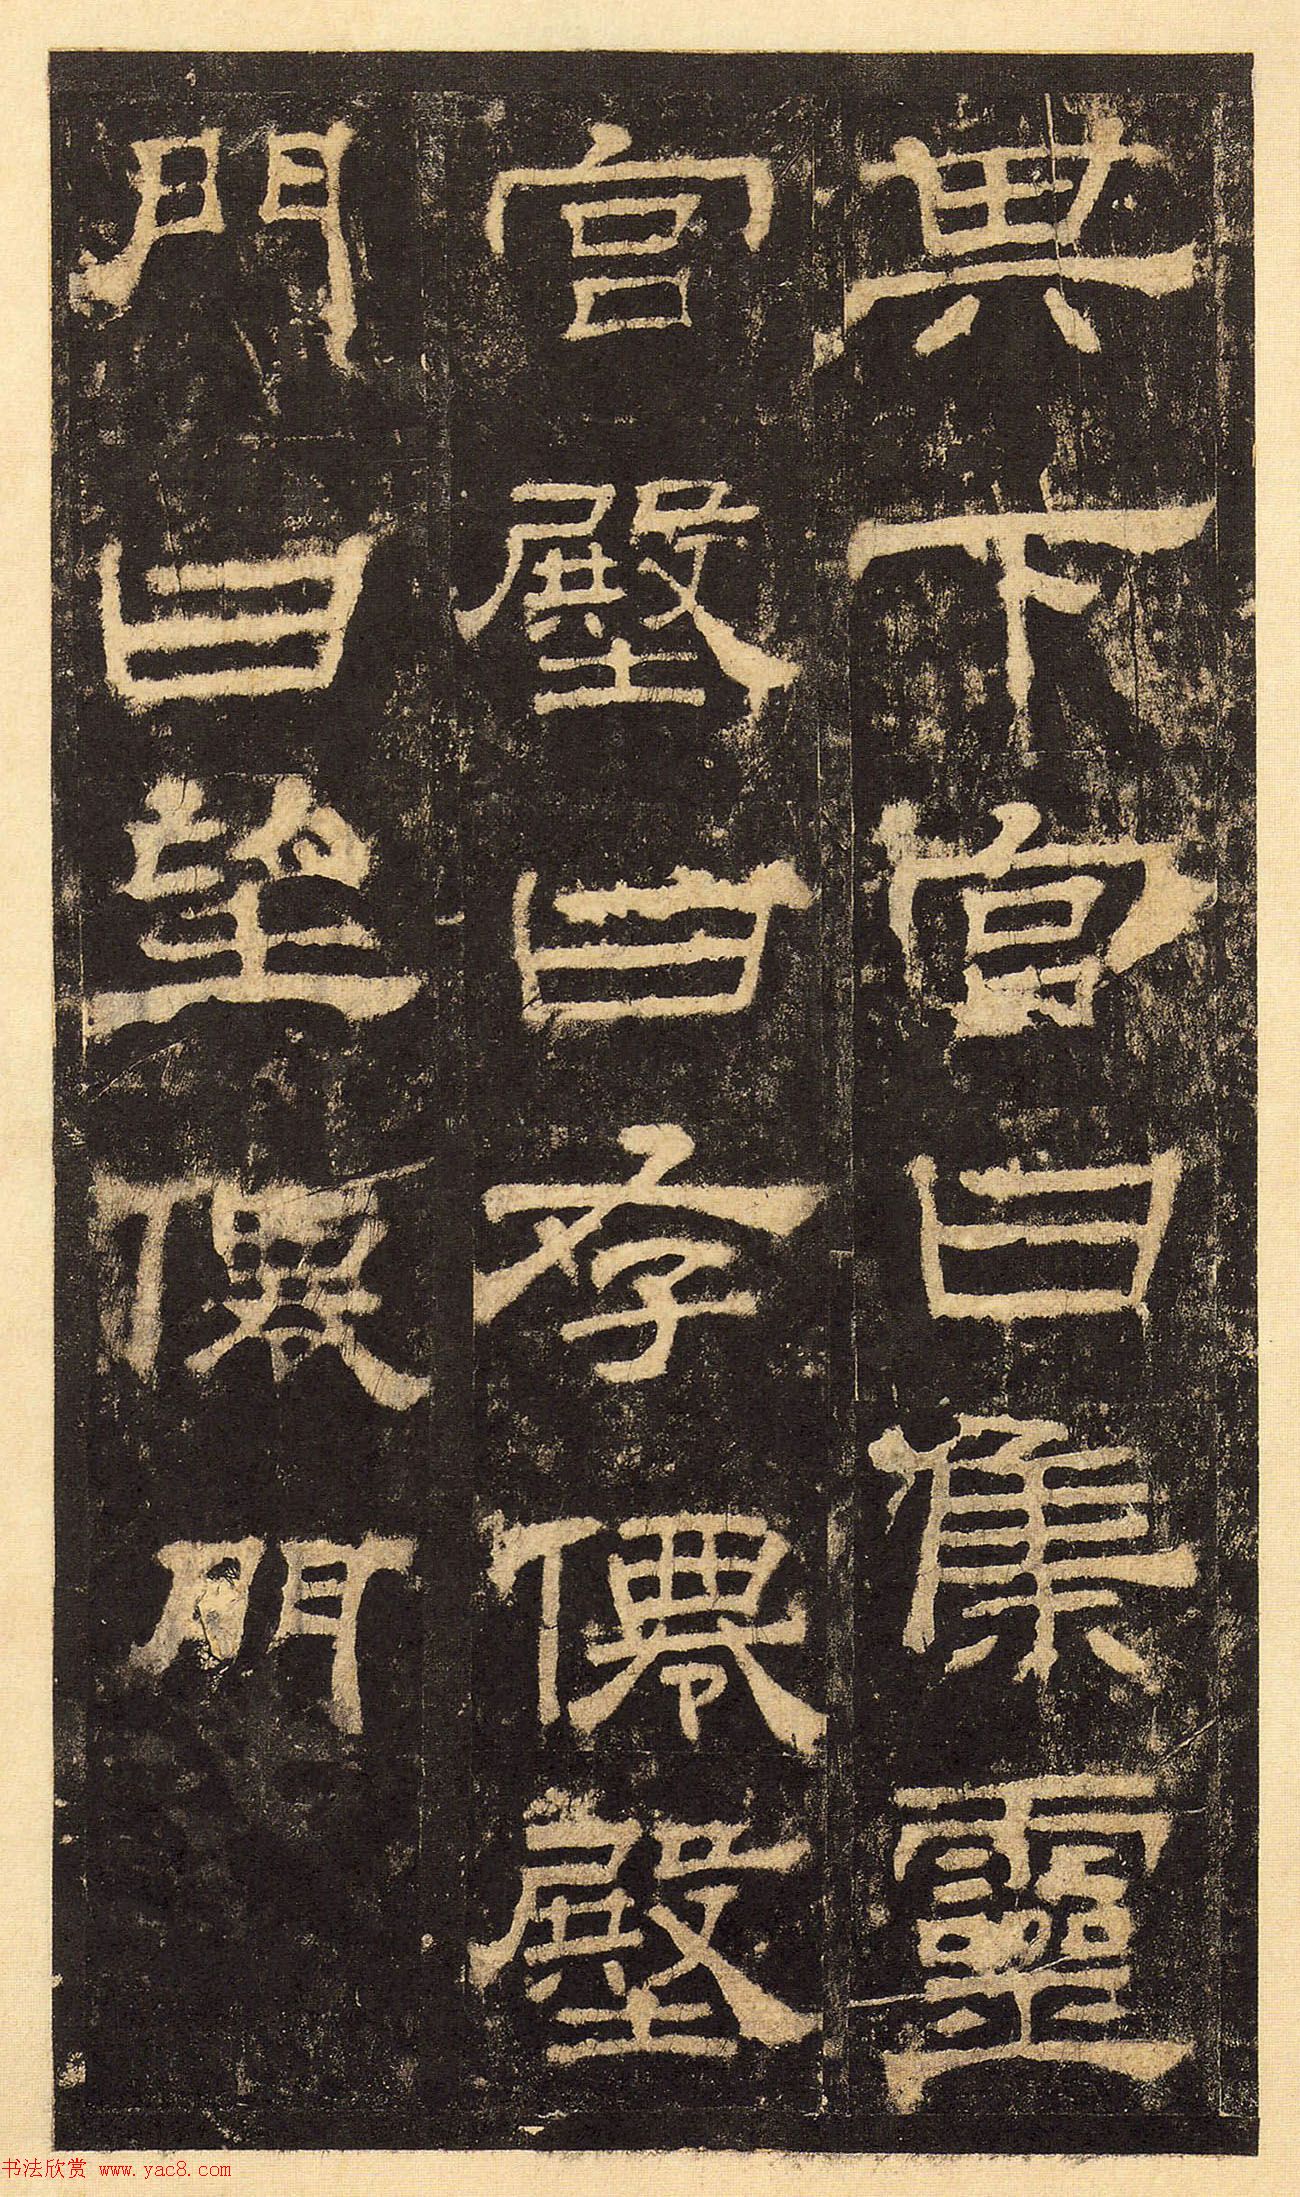 其下宮曰集靈
宮殿曰存僊殿
門曰望僊門
书法欣赏 www.yac8.com